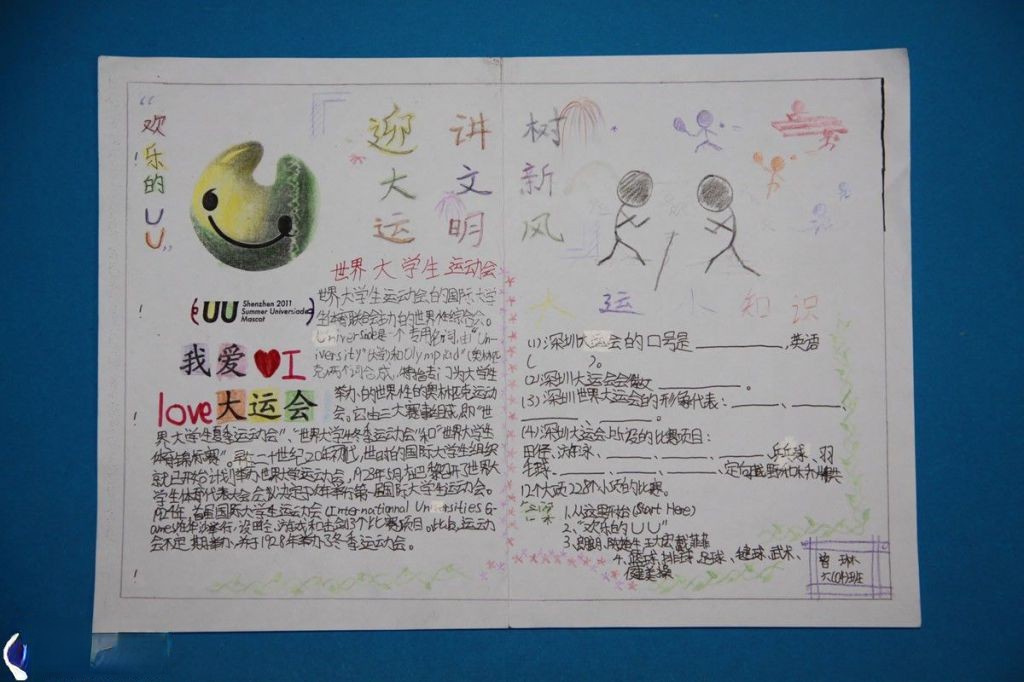 “欢乐的UU”
迎 讲 树
大 文 新
运 明 风
(UU Shenzhen 2011
Summer Universiade
Mascot)
我爱I
love大运会
世界大学生运动会
世界大学生运动会由国际大学
生体育联合会主办的世界性综合
Universiade是一个专用名词,由“Un-
iversity”(大学)和Olympiad”(奥林匹
克)两个词合成,
为大学生
举办的世界性的奥林匹克运动
会。它由三大赛事组成,即“世
界大学生夏季运动会”、“世界大学生冬季运动会”和“世界大学生
二十世纪20年初代,
的国际大学生组织
就已开始计划举办世界大学运动会,1923年5月在巴黎召开世界大
学生体育代表大会会议决定
年举行第一届国际大学生运动会。
首届国际大学生运动会(Internationnal Universities G-
ames
个比赛项目。此后,运动
会不定期举办,并于1928年举办了冬季运动会。
大 运 人 知 识
(1)深圳大运会的口号是________,英语
( )。
(2)深圳大运会会徽 ________。
(3)深圳世界大运会的形象代表:____、____、
____、____。
(4)深圳大运会所设的比赛项目:
田径、游泳、____、____、____、____、乒乓球、羽
毛球、____、____、____、____、定向越野
共
12个大项228个小项的比赛。
答案
1.从这里开始(Start Here)
2、“欢乐的UU”
3、
王大宏 戴菲菲
4、篮球、排球、足球、毽球、武术、
健美操
曾琳
六(4)班